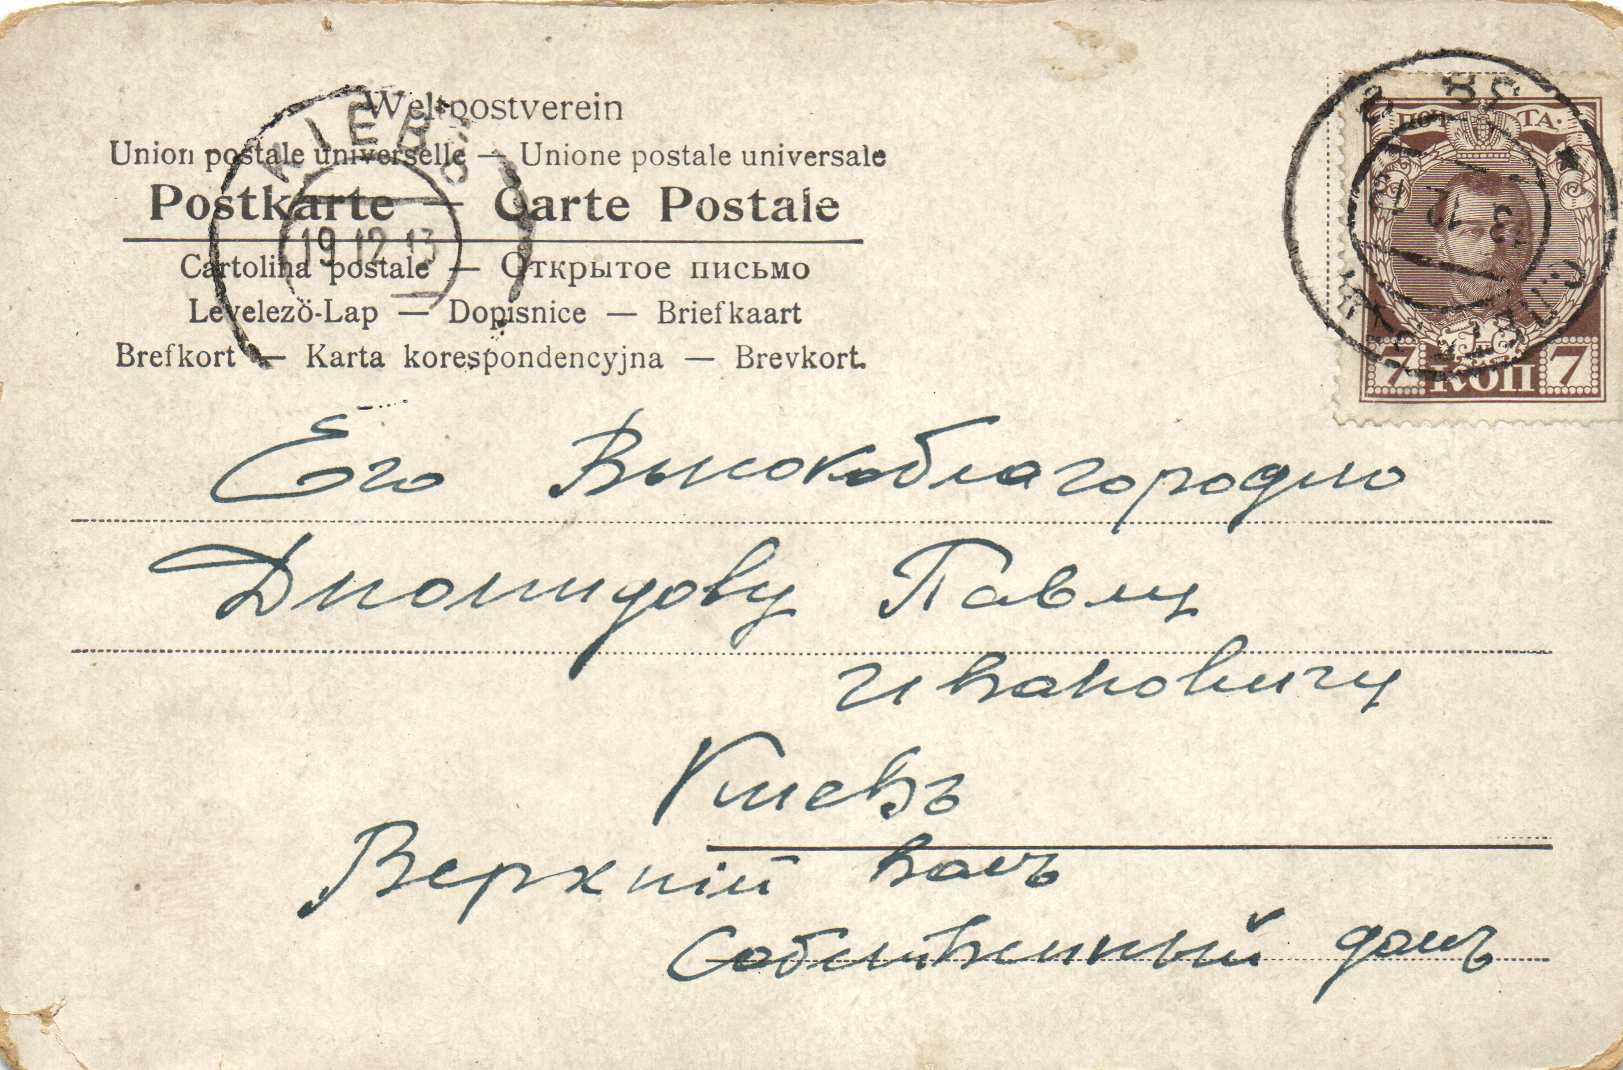 Weltpostverein
Union postale universelle — Unione postale universale
Postkarte — Carte Postale
Cartolina postale — Открытое письмо
Levelezö-Lap — Dopisnice — Briefkaart
Brefkort — Karta korespondencyjna — Brevkort.
КІЕВЪ
19.12.13
ПОЧТА.
7 КОП 7
Его Высокоблагородию
Диомидову Павлу
Ивановичу
Кіевъ
Верхній валъ
Собственный домъ